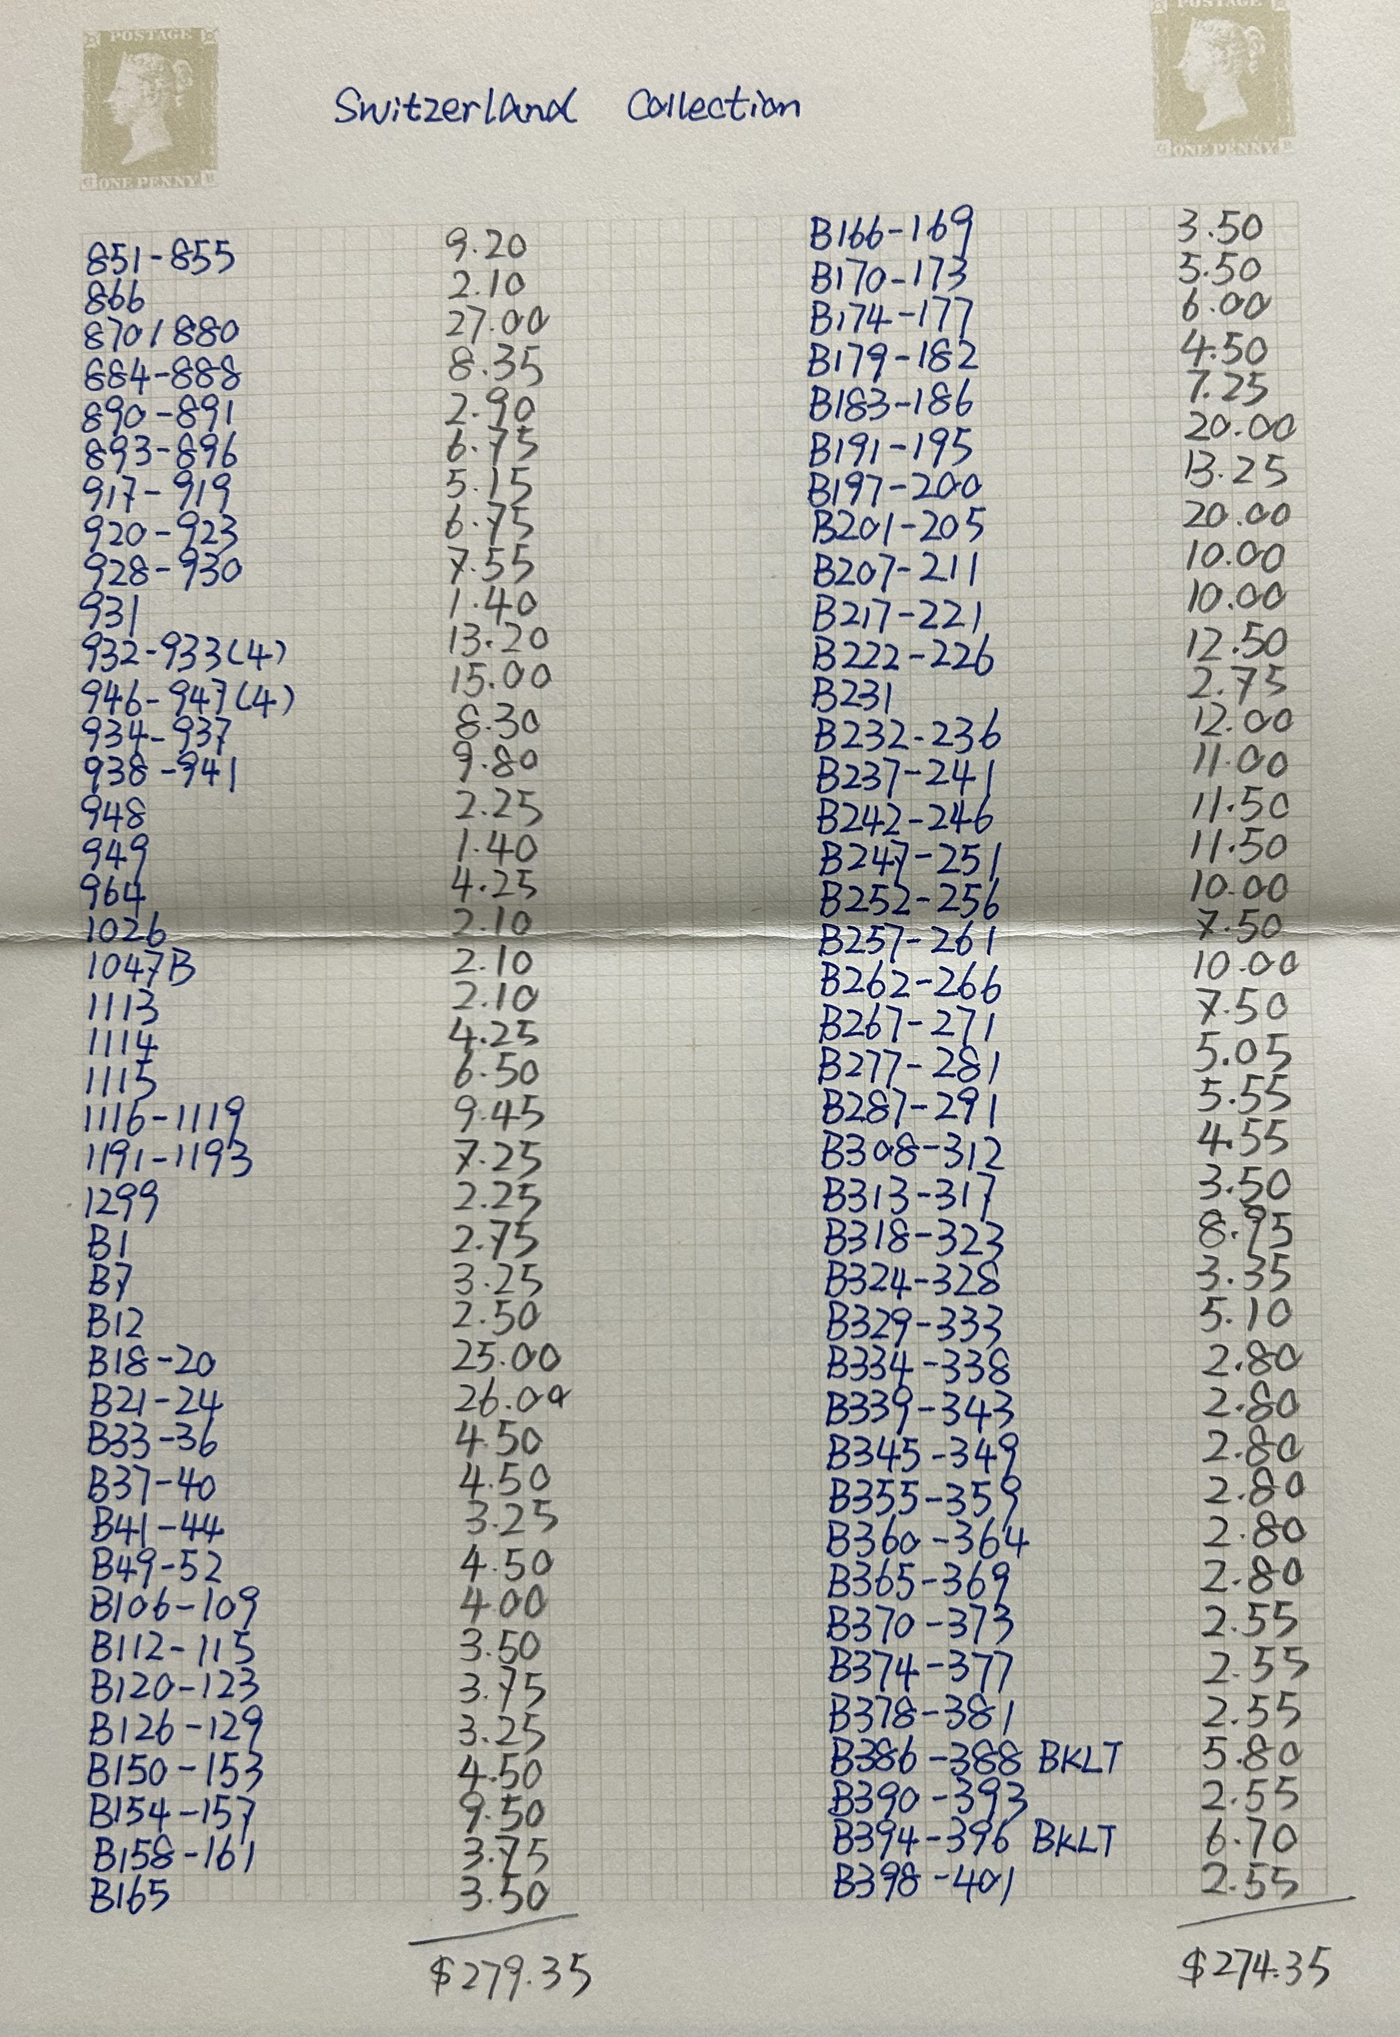 POSTAGE
ONE PENNY
POSTAGE
ONE PENNY
Switzerland Collection
851-855 9.20
866 2.10
870/880 27.00
884-888 8.35
890-891 2.90
893-896 6.75
917-919 5.15
920-923 6.75
928-930 7.55
931 1.40
932-933(4) 13.20
946-947(4) 15.00
934-937 8.30
938-941 9.80
948 2.25
949 1.40
964 4.25
1026 2.10
1047B 2.10
1113 2.10
1114 4.25
1115 6.50
1116-1119 9.45
1191-1193 7.25
1299 2.25
B1 2.75
B7 3.25
B12 2.50
B18-20 25.00
B21-24 26.00
B33-36 4.50
B37-40 4.50
B41-44 3.25
B49-52 4.50
B106-109 4.00
B112-115 3.50
B120-123 3.75
B126-129 3.25
B150-153 4.50
B154-157 9.50
B158-161 3.75
B165 3.50
$279.35
B166-169 3.50
B170-173 5.50
B174-177 6.00
B179-182 4.50
B183-186 7.25
B191-195 20.00
B197-200 13.25
B201-205 20.00
B207-211 10.00
B217-221 10.00
B222-226 12.50
B231 2.75
B232-236 12.00
B237-241 11.00
B242-246 11.50
B247-251 11.50
B252-256 10.00
B257-261 7.50
B262-266 10.00
B267-271 7.50
B277-281 5.05
B287-291 5.55
B308-312 4.55
B313-317 3.50
B318-323 8.95
B324-328 3.35
B329-333 5.10
B334-338 2.80
B339-343 2.80
B345-349 2.80
B355-359 2.80
B360-364 2.80
B365-369 2.80
B370-373 2.55
B374-377 2.55
B378-381 2.55
B386-388 BKLT 5.80
B390-393 2.55
B394-396 BKLT 6.70
B398-401 2.55
$274.35